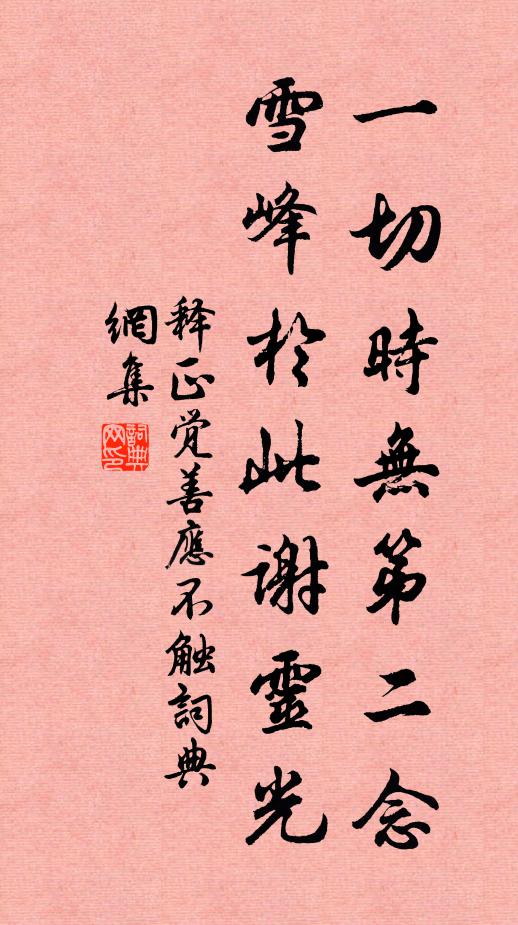 一切時無第二念
雪峰於此謝靈光
释正覚善應不触詞典
網集
詞典
网印